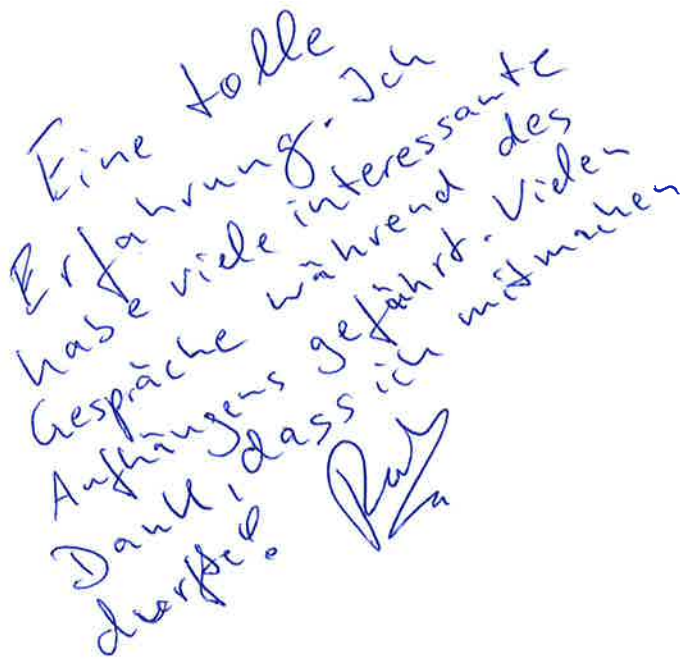 Eine tolle
Erfahrung. Ich
habe viele interessante
Gespräche während des
Aufhängens gefährt. Vielen
Dank, dass ich mitmachen
durfte!